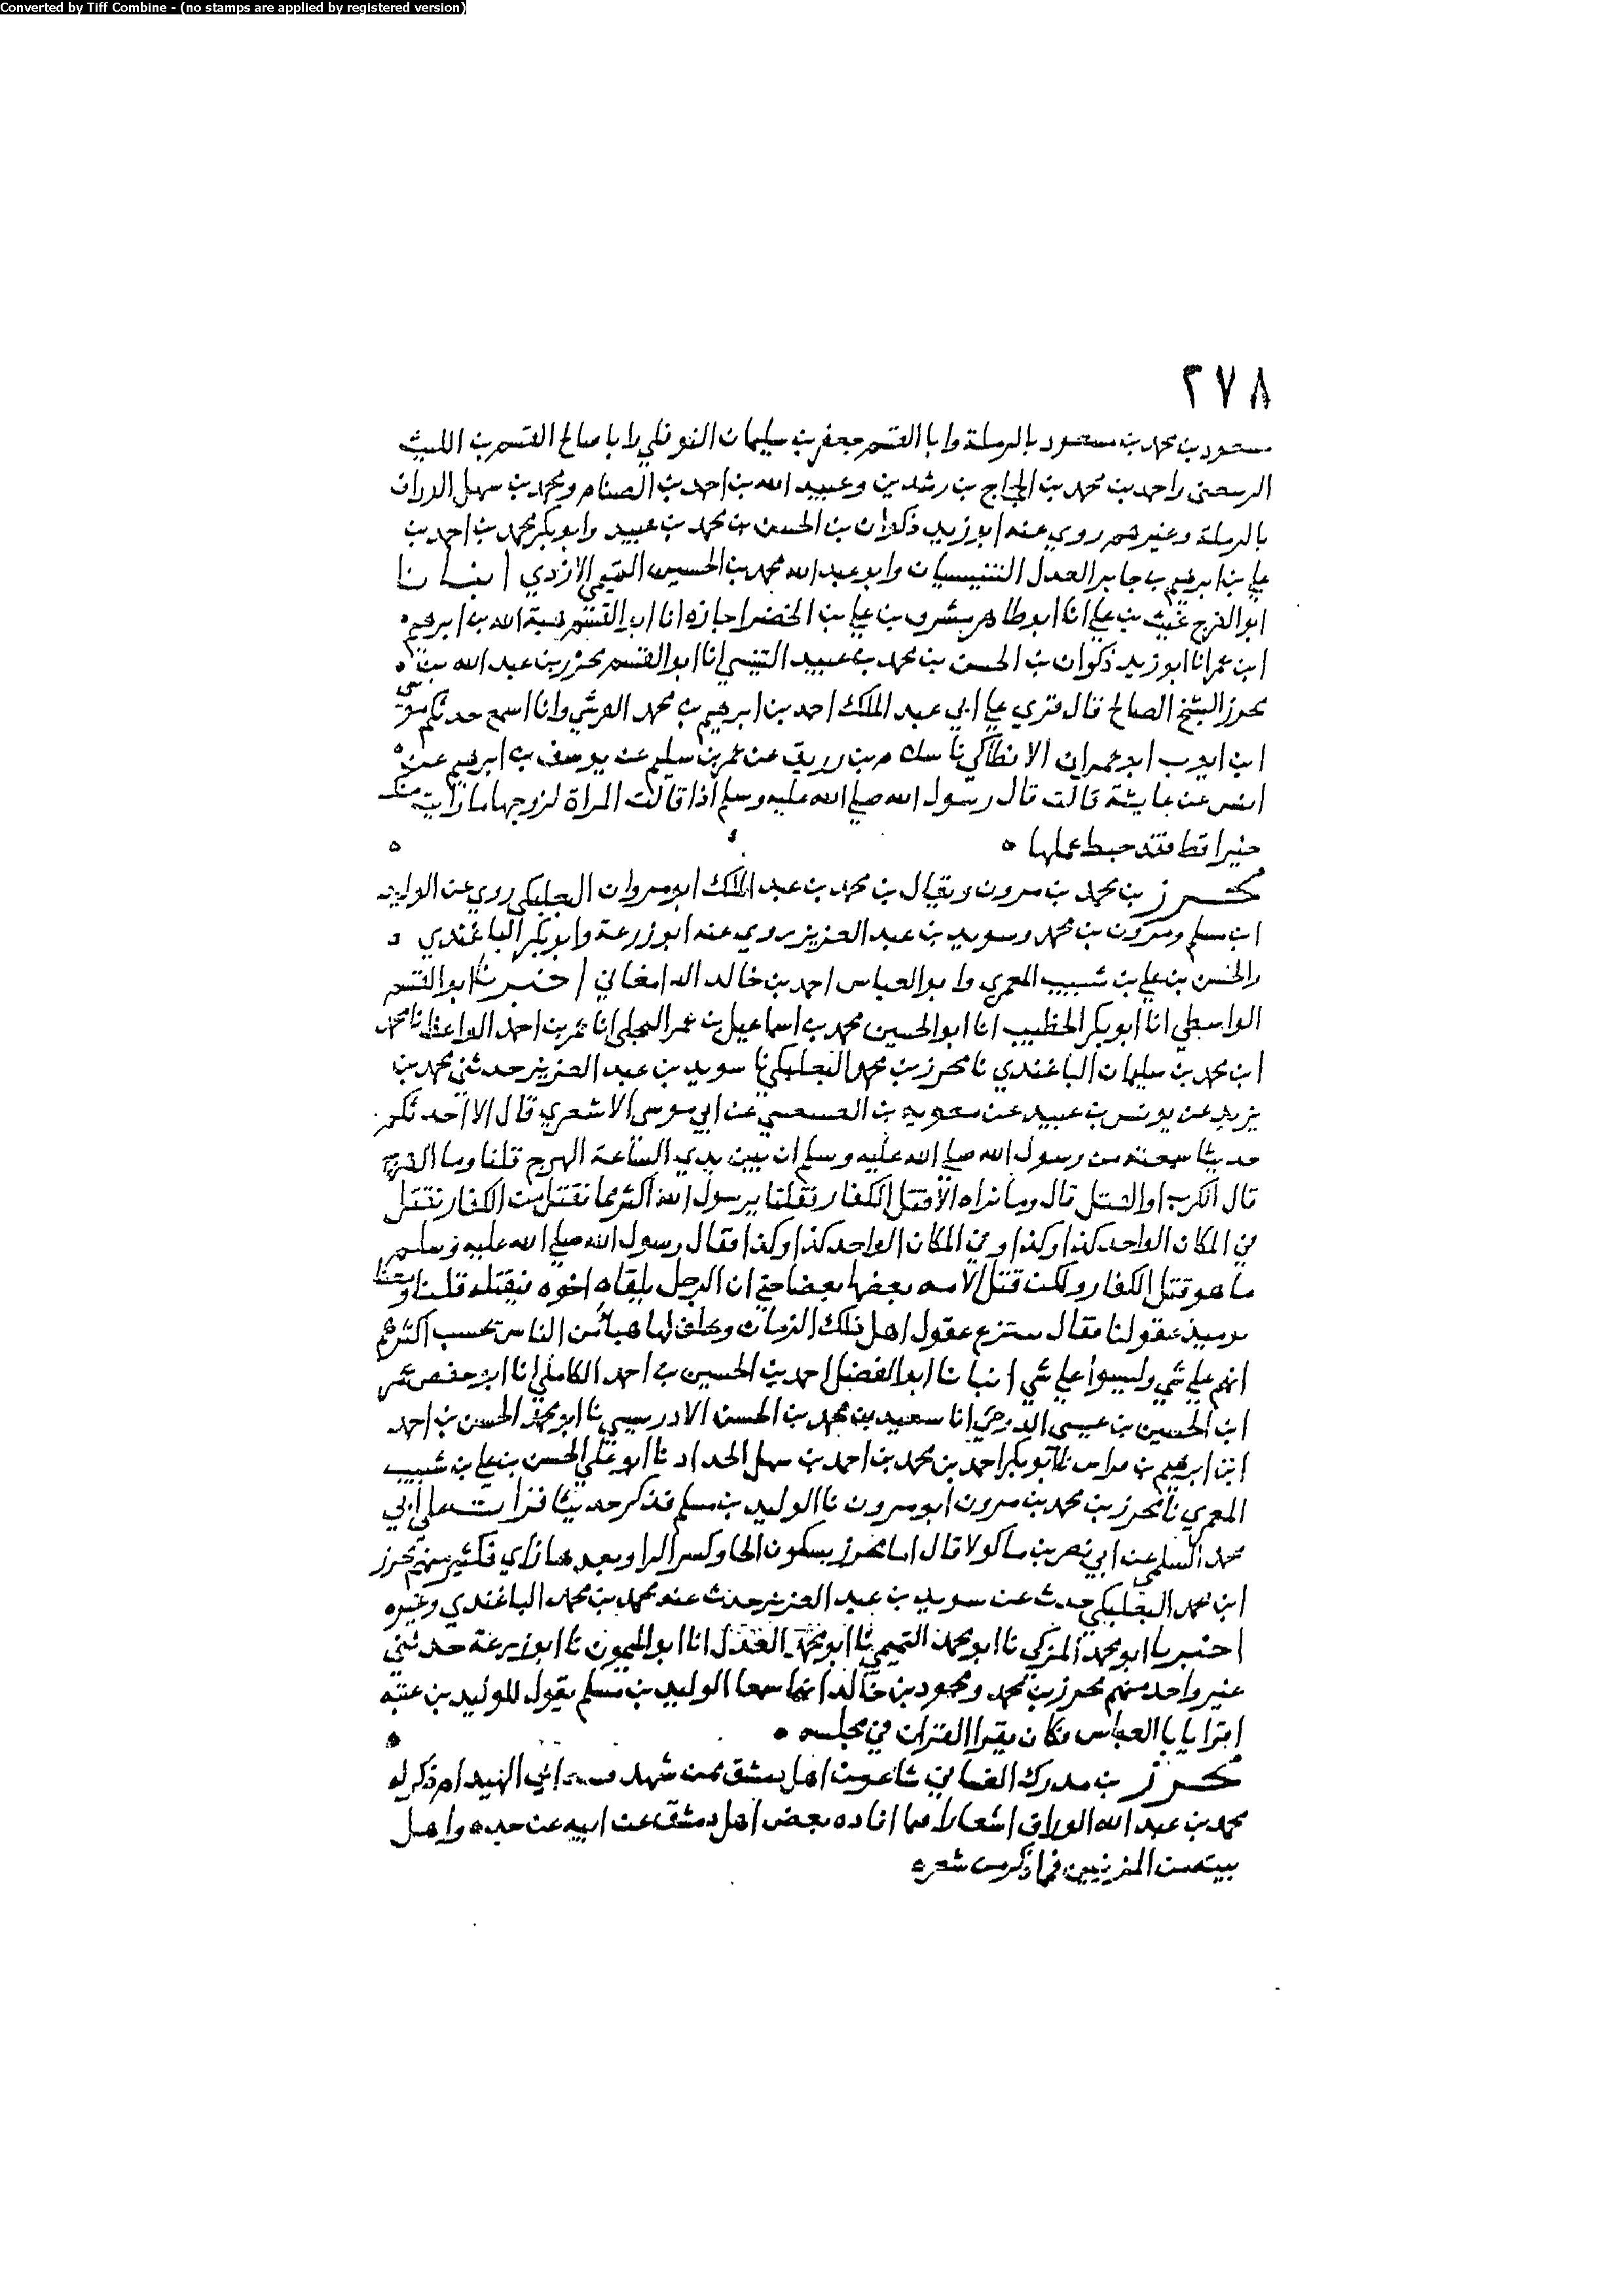 Converted by Tiff Combine - (no stamps are applied by registered version)
٢٧٨
مسعود بن محمد بن مسعود بالرملة وابا القسم جعفر بن سليمان النوفلي وابا صالح القسم بن الليث
الرسعني واحمد بن محمد بن الحجاج بن رشدين وعبيد الله بن احمد بن الصنام ومحمد بن سهل الوراق
بالرملة وغيرهم روي عنه ابو زيد ذكوان بن الحسن بن محمد بن عبيد وابو بكر محمد بن احمد بن
علي بن ابرهيم بن جابر العدل التنيسيان وابو عبد الله محمد بن الحسين التيمي الازدي انبانا
ابو الفرج غيث بن علي انا ابو طاهر مشرف بن علي بن الخضر اجازة انا ابو القسم هبة الله بن ابرهيم
ابن عمر انا ابو زيد ذكوان بن الحسن بن محمد بن عبيد التنيسي انا ابو القسم محرز بن عبد الله بن
محرز الشيخ الصالح قال قري علي ابي عبد الملك احمد بن ابرهيم بن محمد القرشي وانا اسمع حدثكم موسى
ابن ايوب ابو عمران الانطاكي نا سلام بن رزيق عن عمر بن سليم عن يوسف بن ابرهيم عن
انس عن عايشة قالت قال رسول الله صلي الله عليه وسلم اذا قالت المراة لزوجها ما رايت منك
خيرا قط فقد حبط عملها ٥
محرز بن محمد بن مرون ويقال بن محمد بن عبد الملك ابو مروان البعلبكي روي عن الوليد
ابن مسلم ومرون بن محمد وسويد بن عبد العزيز روي عنه ابو زرعة وابو بكر الباغندي
والحسن بن علي بن شبيب المعمري وابو العباس احمد بن خالد الدامغاني اخبرنا ابو القسم
الواسطي انا ابو بكر الخطيب انا ابو الحسين محمد بن اسماعيل بن عمر البجلي انا عمر بن احمد الواعظ نا محمد
ابن محمد بن سليمان الباغندي نا محرز بن محمد البعلبكي نا سويد بن عبد العزيز حدثني محمد بن
يزيد عن يونس بن عبيد عن معوية بن عن ابي موسى الاشعري قال الا احدثكم
حديثا سمعته من رسول الله صلي الله عليه وسلم ان بين يدي الساعة الهرج قلنا وما الهرج
قال الكرب او القتل قال وما نراه الا قتل الكفار فقلنا يرسول الله اكثر مما نقتل من الكفار نقتل
في المكان الواحد كذا وكذا وفي المكان الواحد كذا وكذا فقال رسول الله صلي الله عليه وسلم
ما هو قتل الكفار ولكن قتل الامه بعضها بعضا حتي ان الرجل يلقاه اخوه فيقتله قلنا ومعنا
يوميذ عقولنا فقال ستنزع عقول اهل ذلك الزمان ويخلف لها هباء من الناس يحسب اكثرهم
انهم علي شي وليسوا علي شي انبانا ابو الفضل احمد بن الحسين بن احمد الكاملي انا ابو حفص عمر
ابن الحسين بن عيسى انا سعيد بن محمد بن الحسن الادريسي نا ابو محمد الحسن بن احمد
ابن ابرهيم بن فراس نا ابو بكر احمد بن محمد بن احمد بن سهل الحداد نا ابو علي الحسن بن علي بن شبيب
المعمري نا محرز بن محمد بن مرون ابو مرون نا الوليد بن مسلم فذكر حديثا قرات علي ابي
محمد السلمي عن ابي نصر بن ماكولا قال اما محرز بسكون الحا وكسر الرا وبعدها زاي فكثير منهم محرز
ابن محمد البعلبكي حدث عن سويد بن عبد العزيز حدث عنه محمد بن محمد الباغندي وغيره
اخبرنا ابو محمد المزكي نا ابو محمد التميمي نا ابو محمد العدل انا ابو الميمون نا ابو زرعة حدثني
غير واحد منهم محرز بن محمد ومحمود بن خالد انهما سمعا الوليد بن مسلم يقول للوليد بن عتبه
اقرا يابا العباس فكان يقرا القران في مجلسه ٥
محرز بن مدرك الغساني شاعر من اهل دمشق ممن شهد ابي الهيدام ذكر له
محمد بن عبد الله الوراق اشعارا مما افاده بعض اهل دمشق عن ابيه عن جده واهل
بيته من المزنيين فما ذكر من شعره